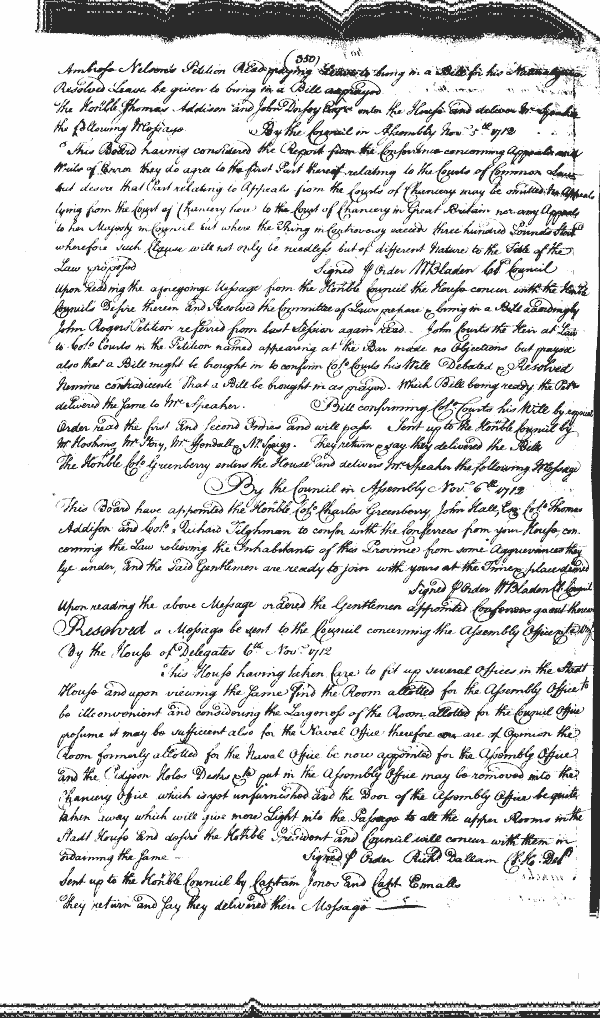 (350)
Ambrose Nelson's Petition Read praying Leave to bring in a Bill for his Naturalization
Resolved Leave be given to bring in a Bill as prayed
The Honble Thomas Addison and John Dorsey Esqrs enter the House and deliver Mr Speaker
the following Message By the Council in Assembly Novr 5th 1712
This Board having considered the Report from the Conference concerning Appeals and
Writs of Error they do agree to the first Part thereof relating to the Courts of Common Law
but desire that Part relating to Appeals from the Courts of Chancery may be omitted no Appeals
lying from the Court of Chancery here to the Court of Chancery in Great Britain nor any Appeals
to her Majesty in Council but where the Thing in Controversy exceed three hundred Pounds Sterl
wherefore such Clause will not only be needless but of different Nature to the Title of the
Law proposed Signed p Order W Bladen Cl Council
Upon reading the aforegoing Message from the Honble Council the House concur with the Honble
Council's Desire therein and Resolved the Committee of Laws prepare & bring in a Bill accordingly
John Rogers Petition referred from last Session again read John Courts the Heir at Law
to Colo Courts in the Petition named appearing at the Bar made no Objections but prayed
also that a Bill might be brought in to confirm Colo Courts his Will Debated & Resolved
Nemine contradicente That a Bill be brought in as prayed. Which Bill being ready the
delivered the same to Mr Speaker. Bill confirming Colo Courts his Will by especial
Order read the first and second Times and will pass. Sent up to the Honble Council by
Mr Hoskins Mr Story, Mr Yondall & Mr Spigg. They return & say they delivered the Bill
The Honble Colo Greenberry enters the House and delivers Mr Speaker the following Message
By the Council in Assembly Novr 6th 1712
This Board have appointed the Honble Colo Charles Greenberry, John Hall, Esq Colo Thomas
Addison and Colo Richard Tilghman to confer with the Conferrees from your House, con
cerning the Law relieving the Inhabitants of this Province from some Aggrievances they
lye under, and the said Gentlemen are ready to join with yours at the Time & place desired
Signed p Order W Bladen Cl Council
Upon reading the above Message ordered the Gentlemen appointed Conferrees
Resolved a Message be sent to the Council concerning the Assembly Office
By the House of Delegates 6th Novr 1712
This House having taken Care to fit up several Offices in the Stadt
House and upon viewing the same find the Room allotted for the Assembly Office to
be illconvenient and considering the Largeness of the Room allotted for the Council Office
presume it may be sufficient also for the Naval Office therefore are of Opinion the
Room formerly allotted for the Naval Office be now appointed for the Assembly Office
and the Pidgeon Holes Desks &c put in the Assembly Office may be removed into the
Chancery Office which is yet unfurnished and the Door of the Assembly Office be quite
taken away which will give more Light into the Passage to all the upper Rooms in the
Stadt House and desire the Honble President and Council will concur with them in
ordaining the same Signed p Order Richd Dallam Cl Ho: Del
Sent up to the Honble Council by Captain Jones and Capt Ennalls
They return and say they delivered their Message